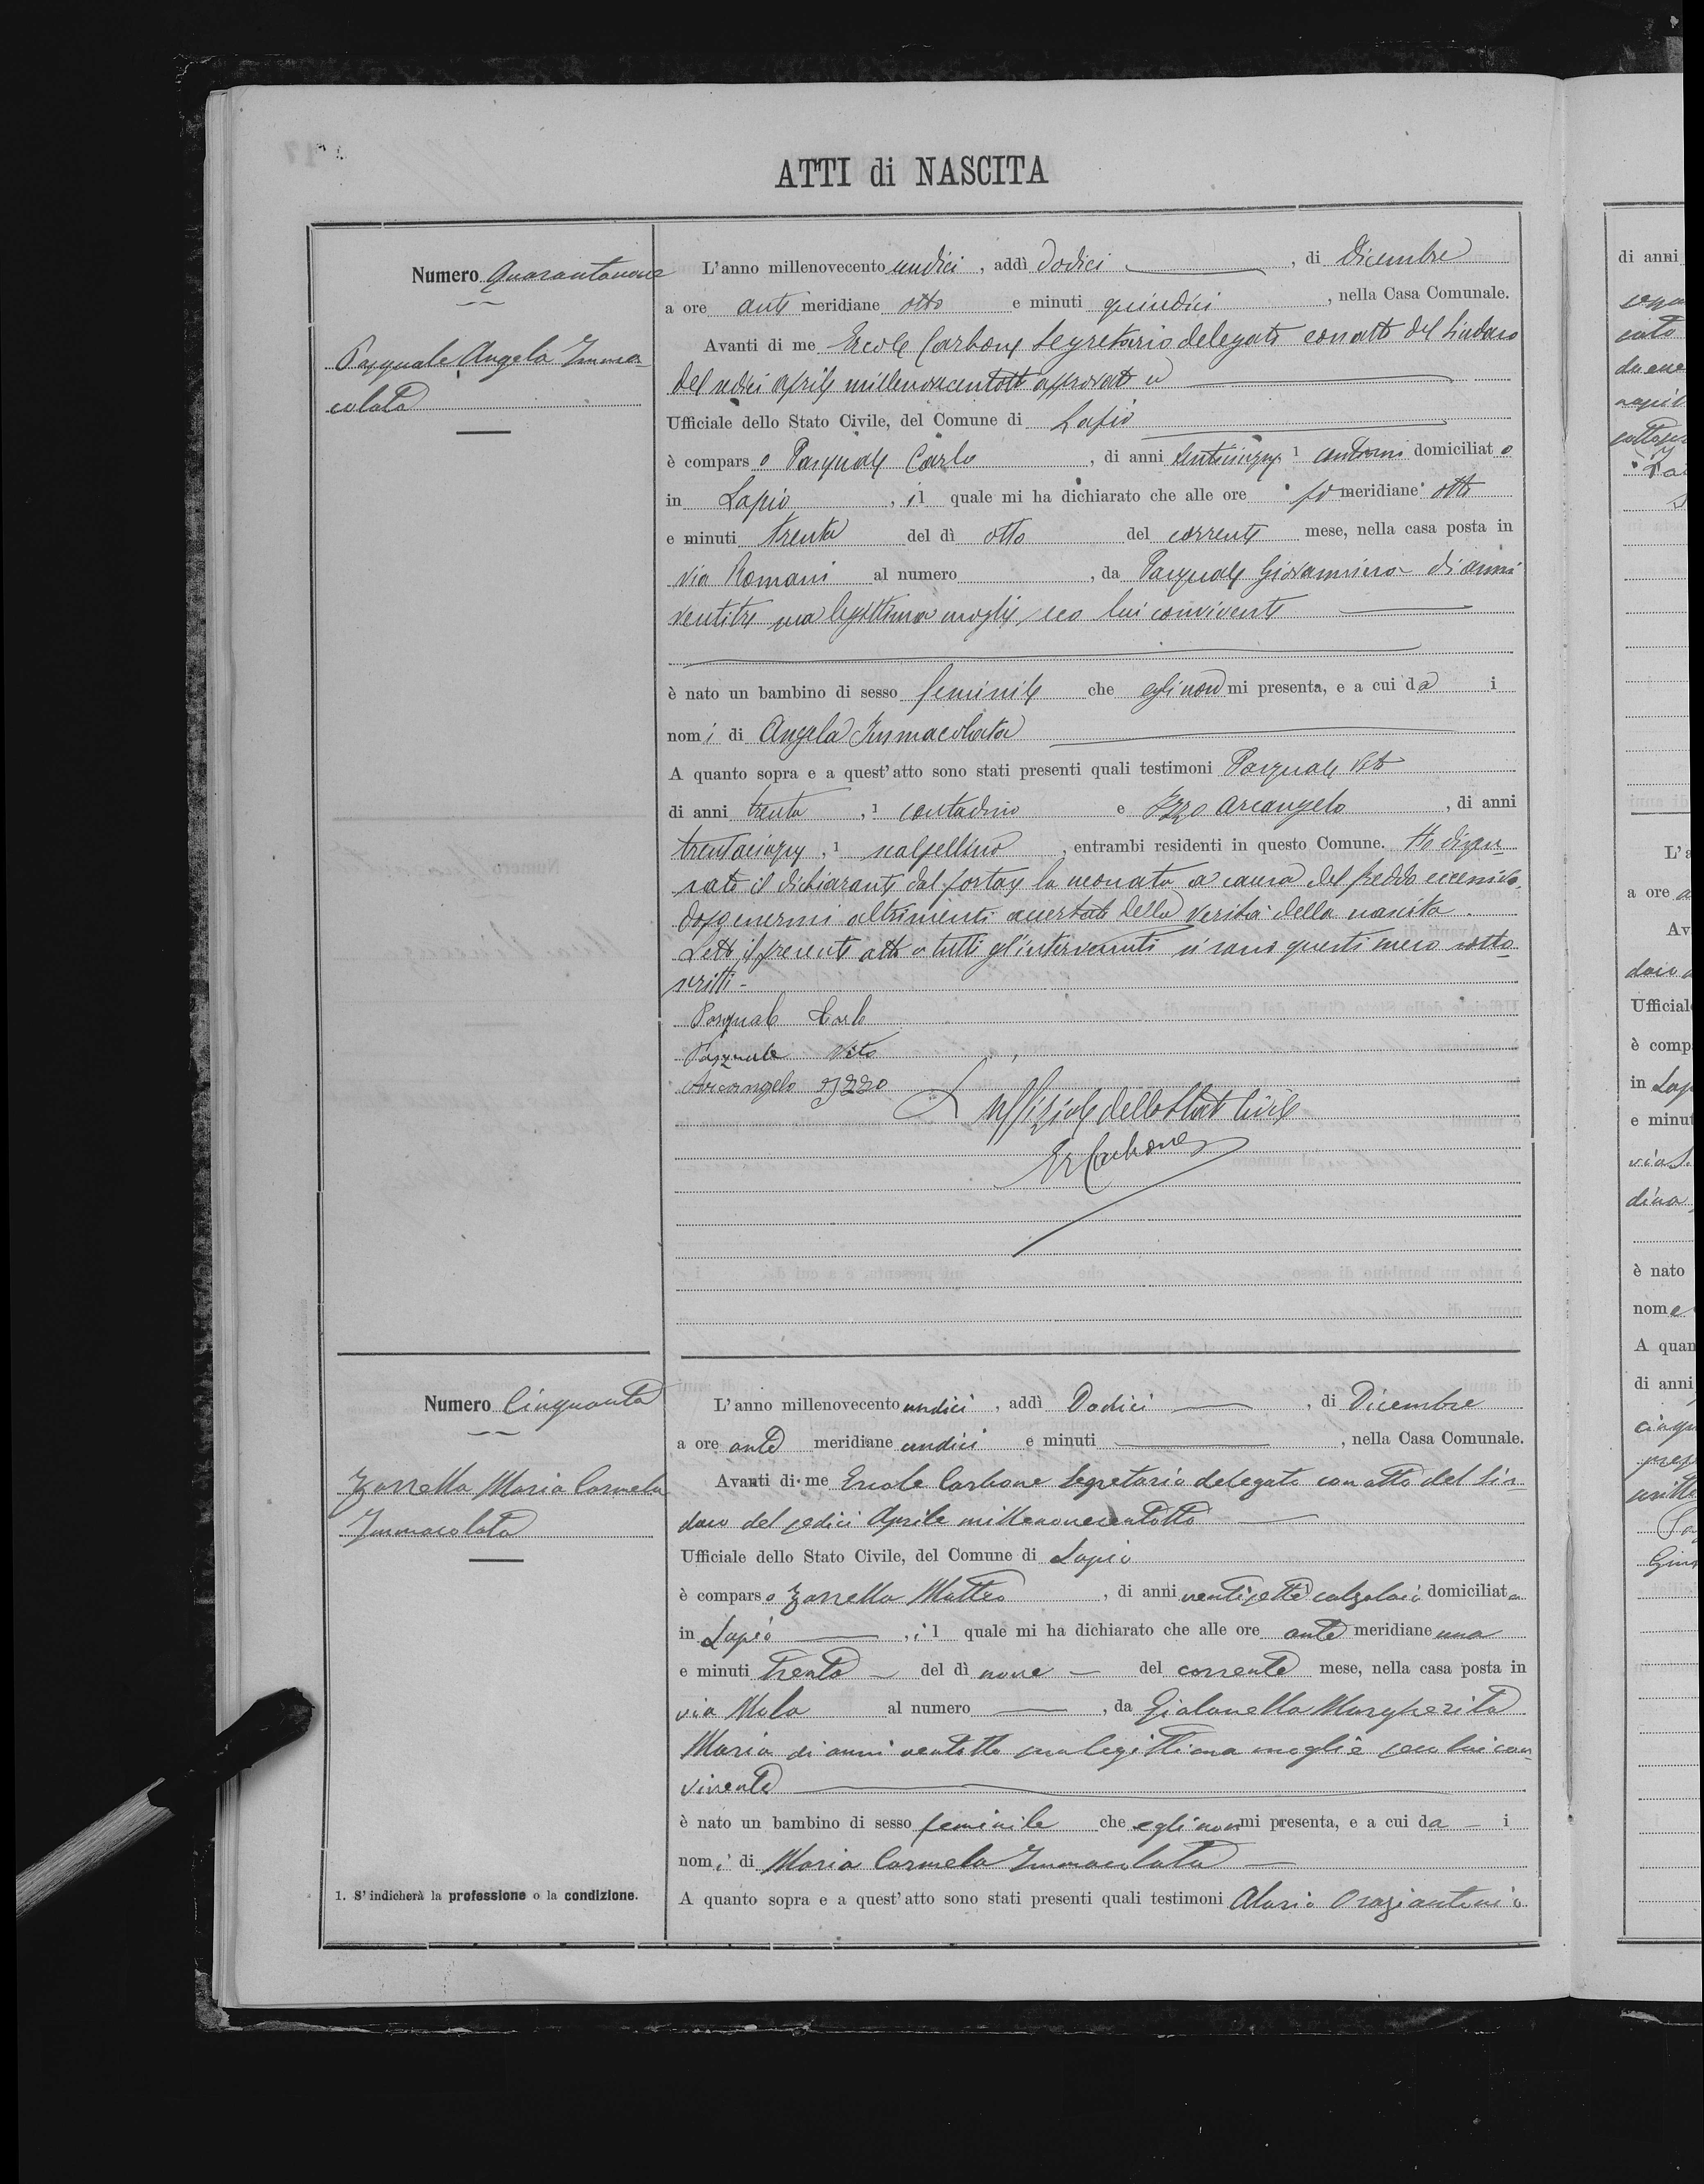 ATTI di NASCITA
Numero Quarantanove
Pasquale Angela Imma-
colata
L'anno millenovecento undici, addì dodici, di Dicembre
a ore anti meridiane otto e minuti quindici, nella Casa Comunale.
Avanti di me Ercole Carbone Segretario delegato con atto del Sindaco
del sedici aprile millenovecentotto approvato
Ufficiale dello Stato Civile, del Comune di Lapio
è comparso Pasquale Carlo, di anni venticinque 1 domiciliato
in Lapio, il quale mi ha dichiarato che alle ore po meridiane otto
e minuti trenta del dì otto del corrente mese, nella casa posta in
via Romani al numero , da Pasquale Giovannina di anni
ventitre sua legittima moglie, seco lui convivente
è nato un bambino di sesso feminile che egli non mi presenta, e a cui dà i
nomi di Angela Immacolata
A quanto sopra e a quest'atto sono stati presenti quali testimoni Pasquale Vito
di anni trenta, 1 contadino e Izzo Arcangelo, di anni
trentacinque, 1 scalpellino, entrambi residenti in questo Comune. Ho dispen-
sato il dichiarante dal portare la neonata a causa del freddo eccessivo,
dopo essermi altrimenti accertato della verità della nascita.
Letto il presente atto a tutti gl'intervenuti si sono questi meco sotto-
scritti-
Pasquale Carlo
Pasquale Vito
Arcangelo Izzo
L'uffiziale dello Stato Civile
Er Carbone
Numero Cinquanta
Zarrella Maria Carmela
Immacolata
L'anno millenovecento undici, addì Dodici, di Dicembre
a ore ante meridiane undici e minuti , nella Casa Comunale.
Avanti di me Ercole Carbone Segretario delegato con atto del Sin-
daco del sedici Aprile millenovecentotto
Ufficiale dello Stato Civile, del Comune di Lapio
è comparso Zarrella Matteo, di anni ventisette calzolaio domiciliato
in Lapio, il quale mi ha dichiarato che alle ore ante meridiane una
e minuti trenta del dì nove del corrente mese, nella casa posta in
via Mola al numero , da Gialanella Margherita
Maria di anni ventotto sua legittima moglie seco lui con-
vivente
è nato un bambino di sesso feminile che egli non mi presenta, e a cui da i
nomi di Maria Carmela Immacolata
A quanto sopra e a quest'atto sono stati presenti quali testimoni Oraziantonio
1. S'indicherà la professione o la condizione.
di anni
L'a
a ore a
Av
Ufficial
è comp
in Lap
e minut
è nato
nome
A quan
di anni